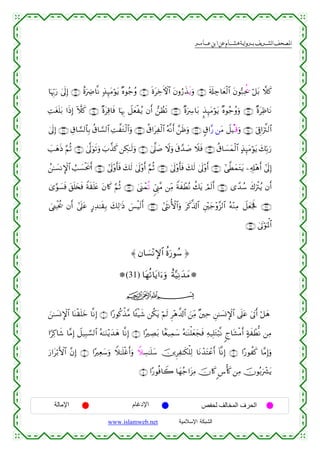 المصحف الشريف برواية هشام عن ابن عامر
كَلَّا بَلْ يُحِبُّونَ ٱلْعَاجِلَةَ ۝ وَيَذَرُونَ ٱلْآخِرَةَ ۝ وُجُوهٌ يَوْمَئِذٍ نَّاضِرَةٌ ۝ إِلَىٰ رَبِّهَا
نَاظِرَةٌ ۝ وَوُجُوهٌ يَوْمَئِذٍ بَاسِرَةٌ ۝ تَظُنُّ أَن يُفْعَلَ بِهَا فَاقِرَةٌ ۝ كَلَّا إِذَا بَلَغَتِ
ٱلتَّرَاقِيَ ۝ وَقِيلَ مَن رَّاقٍ ۝ وَظَنَّ أَنَّهُ ٱلْفِرَاقُ ۝ وَٱلْتَفَّتِ ٱلسَّاقُ بِٱلسَّاقِ ۝ إِلَىٰ
رَبِّكَ يَوْمَئِذٍ ٱلْمَسَاقُ ۝ فَلَا صَدَّقَ وَلَا صَلَّىٰ ۝ وَلَٰكِن كَذَّبَ وَتَوَلَّىٰ ۝ ثُمَّ ذَهَبَ
إِلَىٰ أَهْلِهِۦ يَتَمَطَّىٰ ۝ أَوْلَىٰ لَكَ فَأَوْلَىٰ ۝ ثُمَّ أَوْلَىٰ لَكَ فَأَوْلَىٰ ۝ أَيَحْسَبُ ٱلْإِنسَٰنُ
أَن يُتْرَكَ سُدًى ۝ أَلَمْ يَكُ نُطْفَةً مِّن مَّنِيٍّ تُمْنَىٰ ۝ ثُمَّ كَانَ عَلَقَةً فَخَلَقَ فَسَوَّىٰ
۝ فَجَعَلَ مِنْهُ ٱلزَّوْجَيْنِ ٱلذَّكَرَ وَٱلْأُنثَىٰ ۝ أَلَيْسَ ذَٰلِكَ بِقَٰدِرٍ عَلَىٰ أَن يُحْيِيَ
ٱلْمَوْتَىٰ ۝
﴿ سُورَةُ ٱلْإِنسَان ﴾
مَدَنِيَّةٌ وَءَايَاتُهَا (31)
بسم الله الرحمن الرحيم
هَلْ أَتَىٰ عَلَى ٱلْإِنسَٰنِ حِينٌ مِّنَ ٱلدَّهْرِ لَمْ يَكُن شَيْـًٔا مَّذْكُورًا ۝ إِنَّا خَلَقْنَا ٱلْإِنسَٰنَ
مِن نُّطْفَةٍ أَمْشَاجٍ نَّبْتَلِيهِ فَجَعَلْنَٰهُ سَمِيعًا بَصِيرًا ۝ إِنَّا هَدَيْنَٰهُ ٱلسَّبِيلَ إِمَّا شَاكِرًا
وَإِمَّا كَفُورًا ۝ إِنَّا أَعْتَدْنَا لِلْكَٰفِرِينَ سَلَٰسِلًا وَأَغْلَٰلًا وَسَعِيرًا ۝ إِنَّ ٱلْأَبْرَارَ
يَشْرَبُونَ مِن كَأْسٍ كَانَ مِزَاجُهَا كَافُورًا ۝
الحرف المخالف لحفص الإدغام الإمالة
الشبكة الإسلامية www.islamweb.net